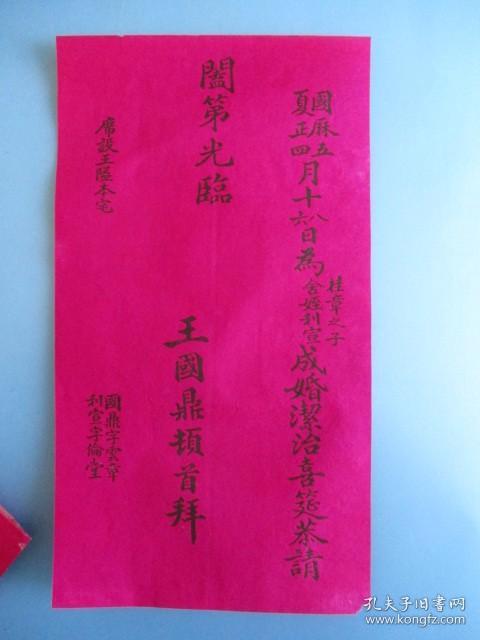 國厤五
夏正四
月十
八
六
日為
桂章之子
舍姪利宣
成婚潔治喜筵恭請
闔第光臨
王國鼎頓首拜
席設王隘本宅
國鼎字雲章
利宣字倫堂
孔夫子旧书网
www.kongfz.com